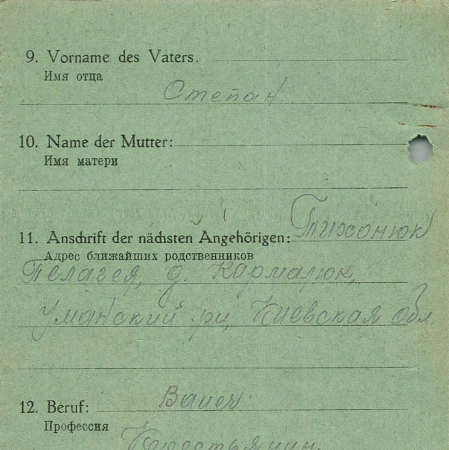 9. Vorname des Vaters.
Имя отца
Степан
10. Name der Mutter:
Имя матери
11. Anschrift der nächsten Angehörigen: Тихонюк
Адрес ближайших родственников
Пелагея, д. Кармалюк,
Уманский р-н, Киевская обл
12. Beruf: Bauer
Профессия
Крестьянин.